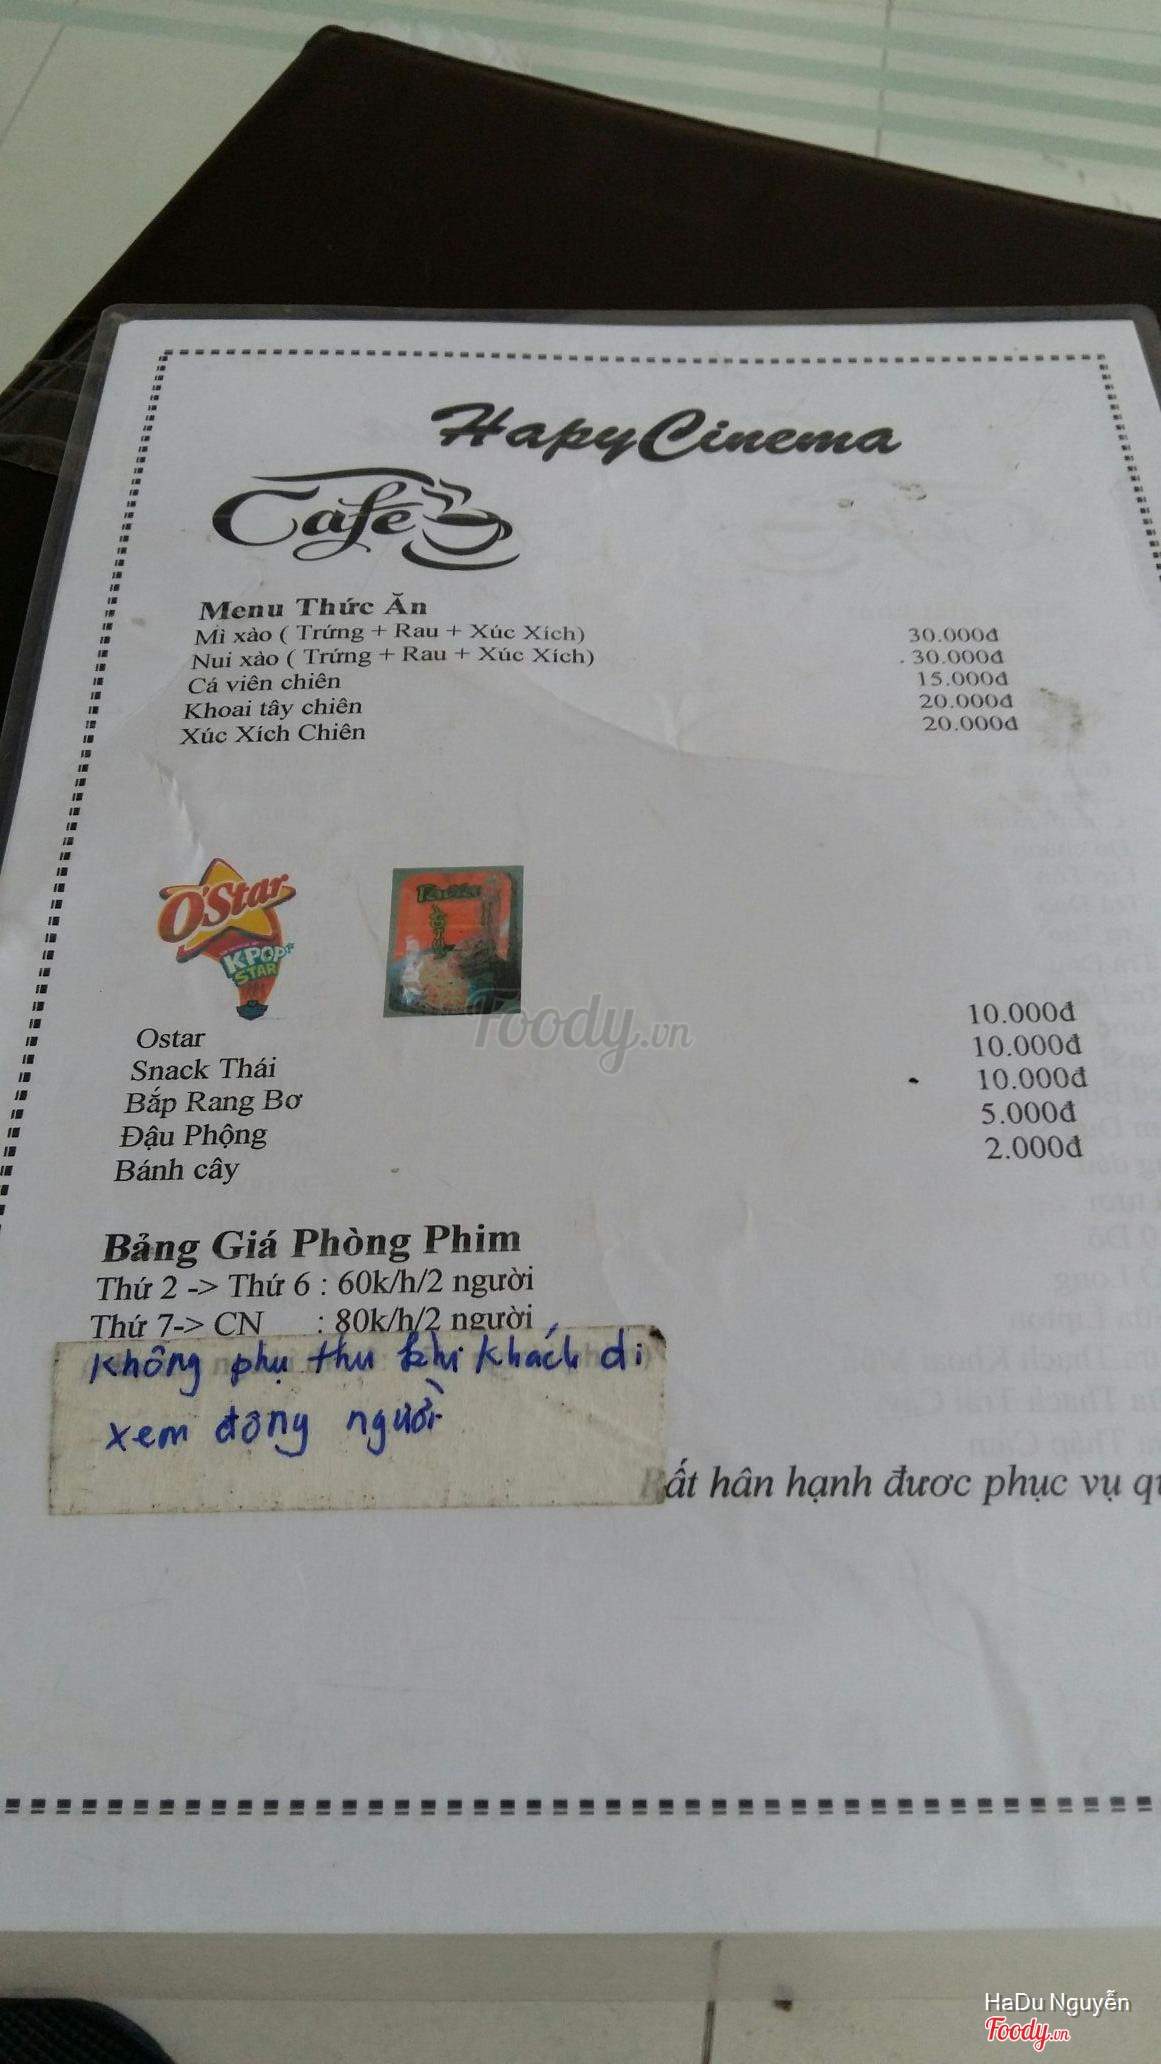 HapyCinema
Cafe
Menu Thức Ăn
Mì xào ( Trứng + Rau + Xúc Xích) 30.000đ
Nui xào ( Trứng + Rau + Xúc Xích) 30.000đ
Cá viên chiên 15.000đ
Khoai tây chiên 20.000đ
Xúc Xích Chiên 20.000đ
O'Star
KPOP
STAR
Foody.vn
Ostar 10.000đ
Snack Thái 10.000đ
Bắp Rang Bơ 10.000đ
Đậu Phộng 5.000đ
Bánh cây 2.000đ
Bảng Giá Phòng Phim
Thứ 2 -> Thứ 6 : 60k/h/2 người
Thứ 7-> CN : 80k/h/2 người
Không phụ thu khi khách đi
xem đông người
ất hân hạnh đươc phục vụ qu
HaDu Nguyễn
Foody.vn